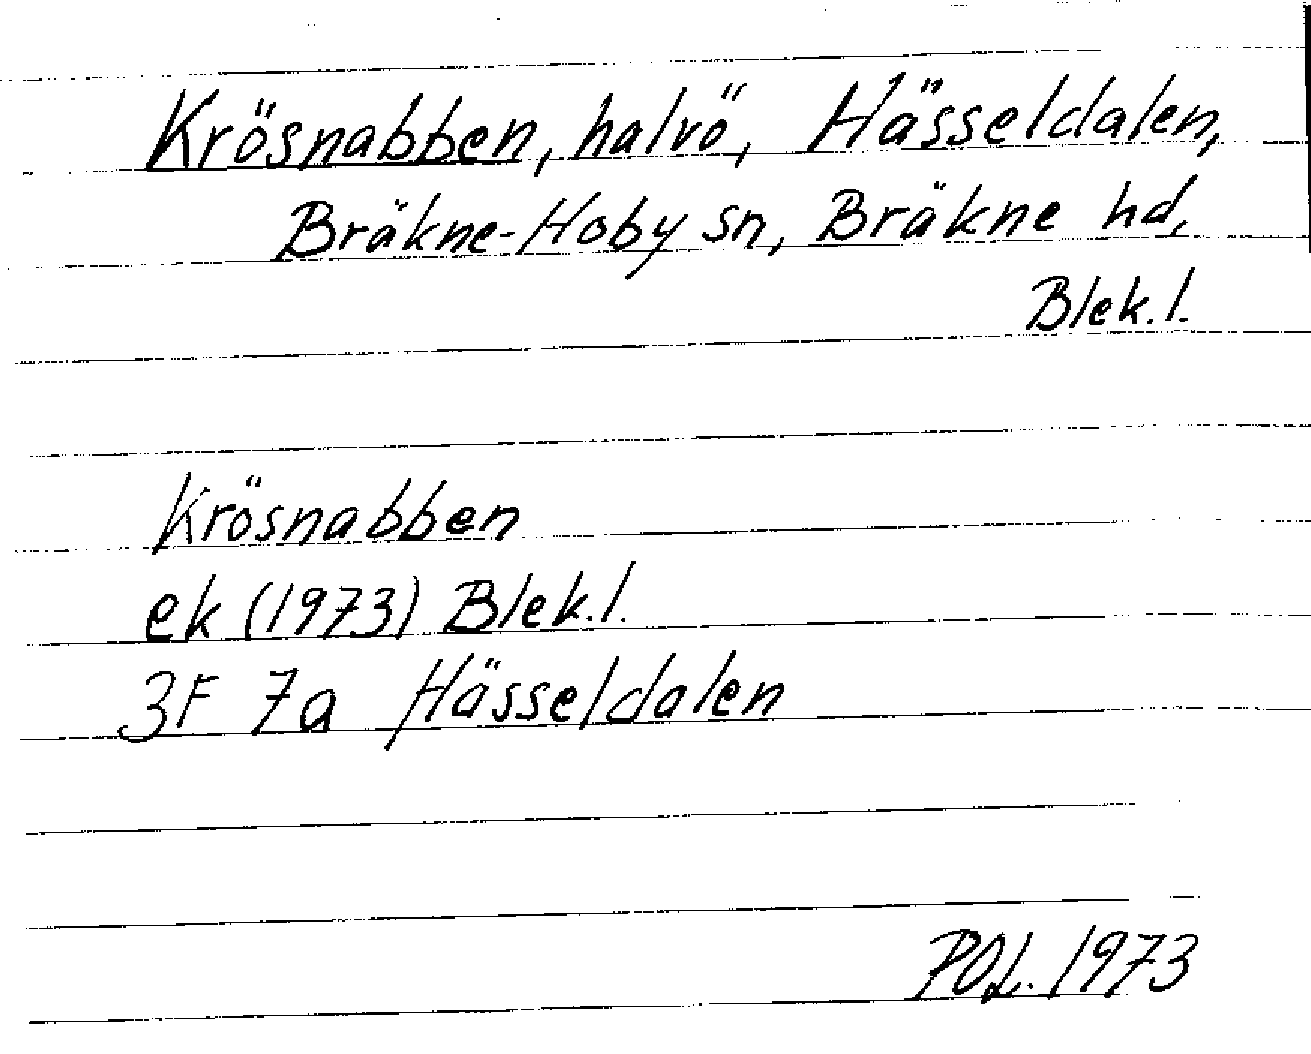 Krösnabben, halvö, Hässeldalen,
Bräkne-Hoby sn, Bräkne hd,
Blek.l.
Krösnabben
ek (1973) Blek.l.
3F 7a Hässeldalen
POL. 1973